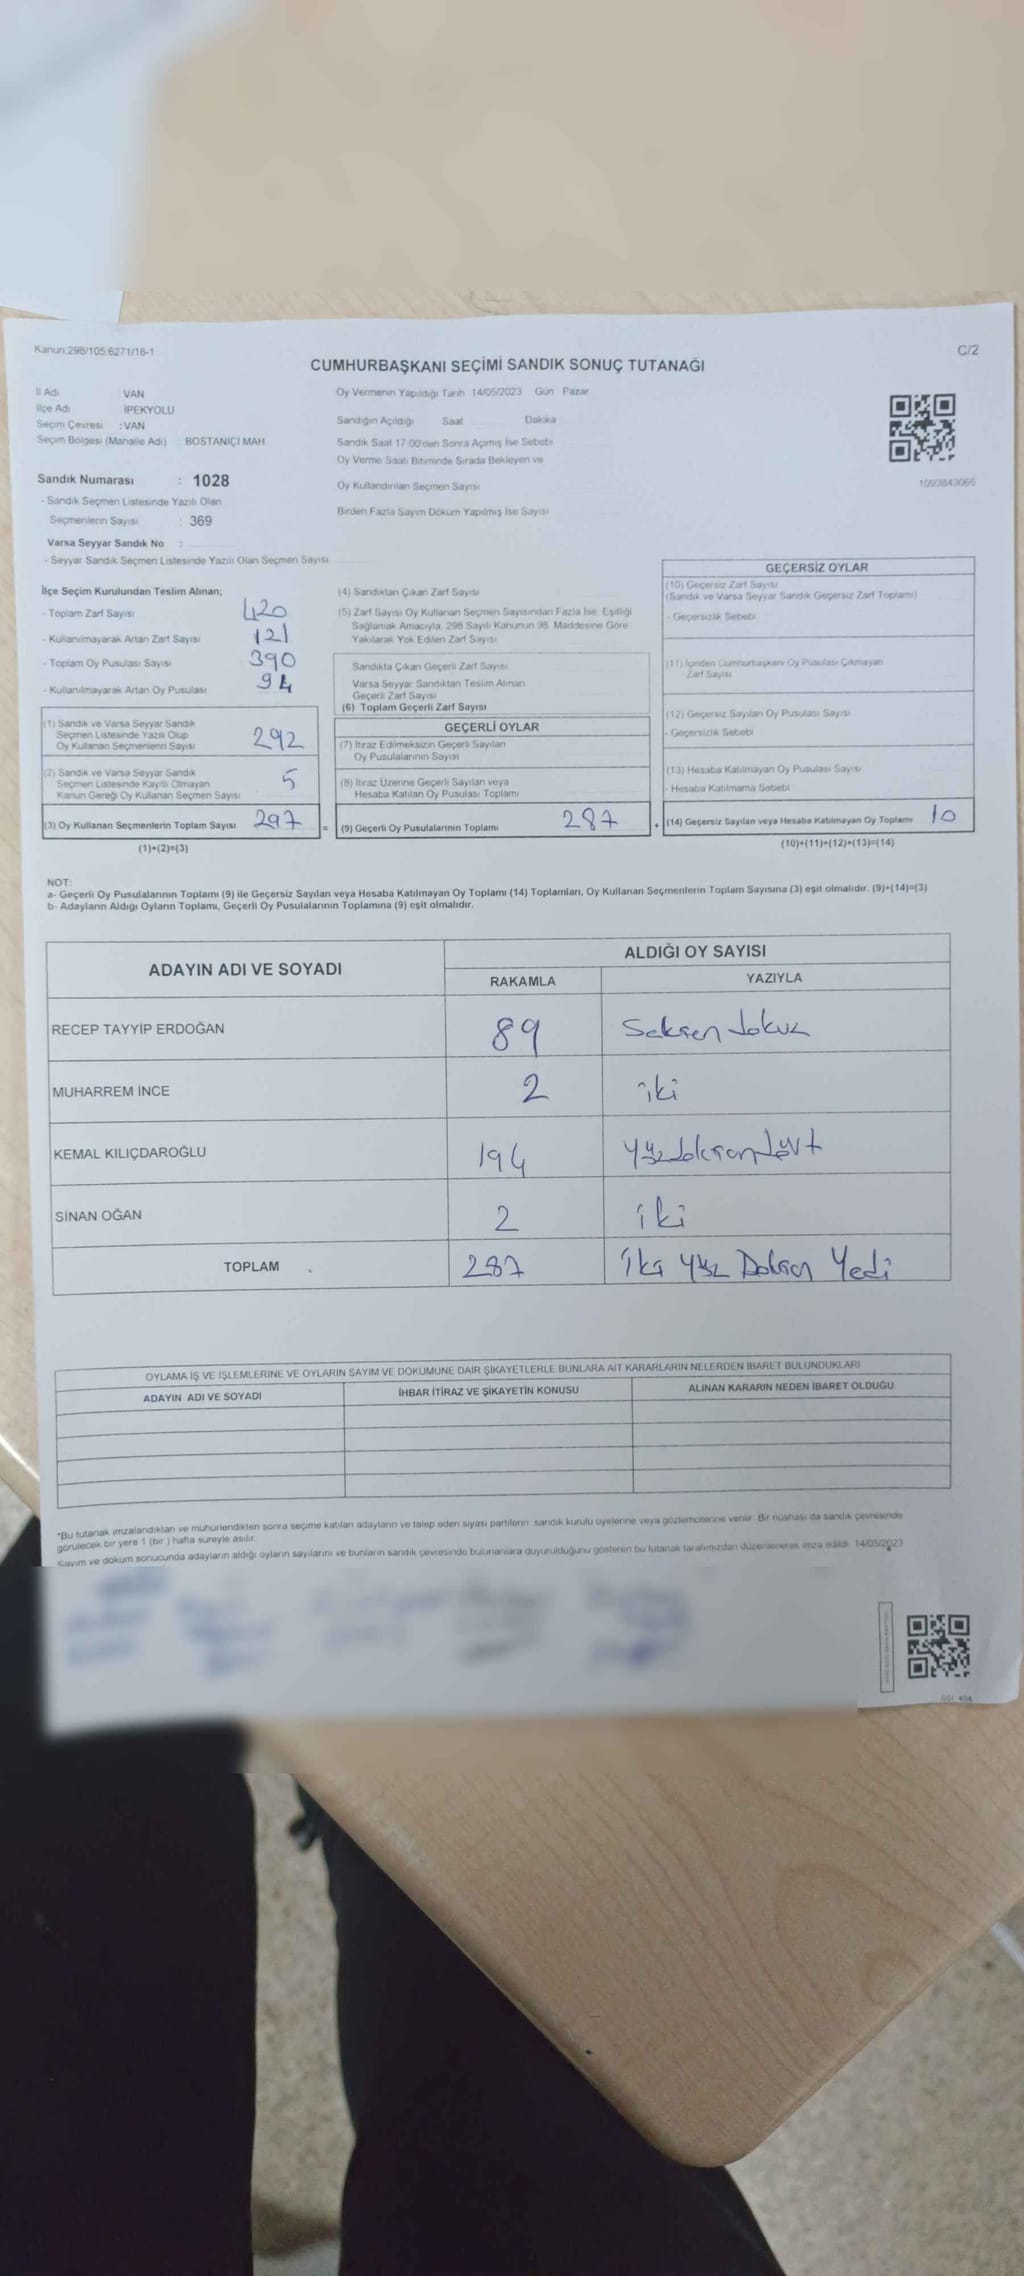 Kanun:298/105;6271/18-1
C/2
CUMHURBAŞKANI SEÇİMİ SANDIK SONUÇ TUTANAĞI
İl Adı VAN
İlçe Adı İPEKYOLU
Seçim Çevresi : VAN
Seçim Bölgesi (Mahalle Adı) : BOSTANİÇİ MAH.
Sandık Numarası : 1028
- Sandık Seçmen Listesinde Yazılı Olan
Seçmenlerin Sayısı : 369
Varsa Seyyar Sandık No :
- Seyyar Sandık Seçmen Listesinde Yazılı Olan Seçmen Sayısı
Oy Vermenin Yapıldığı Tarih 14/05/2023 Gün Pazar
Sandığın Açıldığı Saat Dakika
Sandık Saat 17.00'den Sonra Açımış İse Sebebi
Oy Verme Saati Bitiminde Sırada Bekleyen ve
Oy Kullandırılan Seçmen Sayısı
Birden Fazla Sayım Döküm Yapılmış İse Sayısı
1093843065
İlçe Seçim Kurulundan Teslim Alınan;
- Toplam Zarf Sayısı 420
- Kullanılmayarak Artan Zarf Sayısı 121
- Toplam Oy Pusulası Sayısı 390
- Kullanılmayarak Artan Oy Pusulası 94
(1) Sandık ve Varsa Seyyar Sandık
Seçmen Listesinde Yazılı Olup
Oy Kullanan Seçmenlerin Sayısı 292
(2) Sandık ve Varsa Seyyar Sandık
Seçmen Listesinde Kayıtlı Olmayan
Kanun Gereği Oy Kullanan Seçmen Sayısı 5
(3) Oy Kullanan Seçmenlerin Toplam Sayısı 297
(1)+(2)=(3)
(4) Sandıktan Çıkan Zarf Sayısı
(5) Zarf Sayısı Oy Kullanan Seçmen Sayısından Fazla İse, Eşitliği
Sağlamak Amacıyla, 298 Sayılı Kanunun 98. Maddesine Göre
Yakılarak Yok Edilen Zarf Sayısı
Sandıkta Çıkan Geçerli Zarf Sayısı
Varsa Seyyar Sandıktan Teslim Alınan
Geçerli Zarf Sayısı
(6) Toplam Geçerli Zarf Sayısı
GEÇERLİ OYLAR
(7) İtiraz Edilmeksizin Geçerli Sayılan
Oy Pusulalarının Sayısı
(8) İtiraz Üzerine Geçerli Sayılan veya
Hesaba Katılan Oy Pusulası Toplamı
= (9) Geçerli Oy Pusulalarının Toplamı 287
GEÇERSİZ OYLAR
(10) Geçersiz Zarf Sayısı
(Sandık ve Varsa Seyyar Sandık Geçersiz Zarf Toplamı)
- Geçersizlik Sebebi
(11) İçinden Cumhurbaşkanı Oy Pusulası Çıkmayan
Zarf Sayısı
(12) Geçersiz Sayılan Oy Pusulası Sayısı
- Geçersizlik Sebebi
(13) Hesaba Katılmayan Oy Pusulası Sayısı
- Hesaba Katılmama Sebebi
+ (14) Geçersiz Sayılan veya Hesaba Katılmayan Oy Toplamı 10
(10)+(11)+(12)+(13)=(14)
NOT:
a- Geçerli Oy Pusulalarının Toplamı (9) ile Geçersiz Sayılan veya Hesaba Katılmayan Oy Toplamı (14) Toplamları, Oy Kullanan Seçmenlerin Toplam Sayısına (3) eşit olmalıdır. (9)+(14)=(3)
b- Adayların Aldığı Oyların Toplamı, Geçerli Oy Pusulalarının Toplamına (9) eşit olmalıdır.
ADAYIN ADI VE SOYADI
ALDIĞI OY SAYISI
RAKAMLA YAZIYLA
RECEP TAYYİP ERDOĞAN 89 Seksen dokuz
MUHARREM İNCE 2 iki
KEMAL KILIÇDAROĞLU 194 Yüzdoksandört
SİNAN OĞAN 2 iki
TOPLAM 287 İki Yüz Doksan Yedi
OYLAMA İŞ VE İŞLEMLERİNE VE OYLARIN SAYIM VE DÖKÜMÜNE DAİR ŞİKAYETLERLE BUNLARA AİT KARARLARIN NELERDEN İBARET BULUNDUKLARI
ADAYIN ADI VE SOYADI İHBAR İTİRAZ VE ŞİKAYETİN KONUSU ALINAN KARARIN NEDEN İBARET OLDUĞU
*Bu tutanak imzalandıktan ve mühürlendikten sonra seçime katılan adayların ve talep eden siyasi partilerin sandık kurulu üyelerine veya gözlemcilerine verilir. Bir nüshası da sandık çevresinde
görülecek bir yere 1 (bir ) hafta süreyle asılır.
Sayım ve döküm sonucunda adayların aldığı oyların sayılarını ve bunların sandık çevresinde bulunanlara duyurulduğunu gösteren bu tutanak tarafımızdan düzenlenerek imza edildi. 14/05/2023